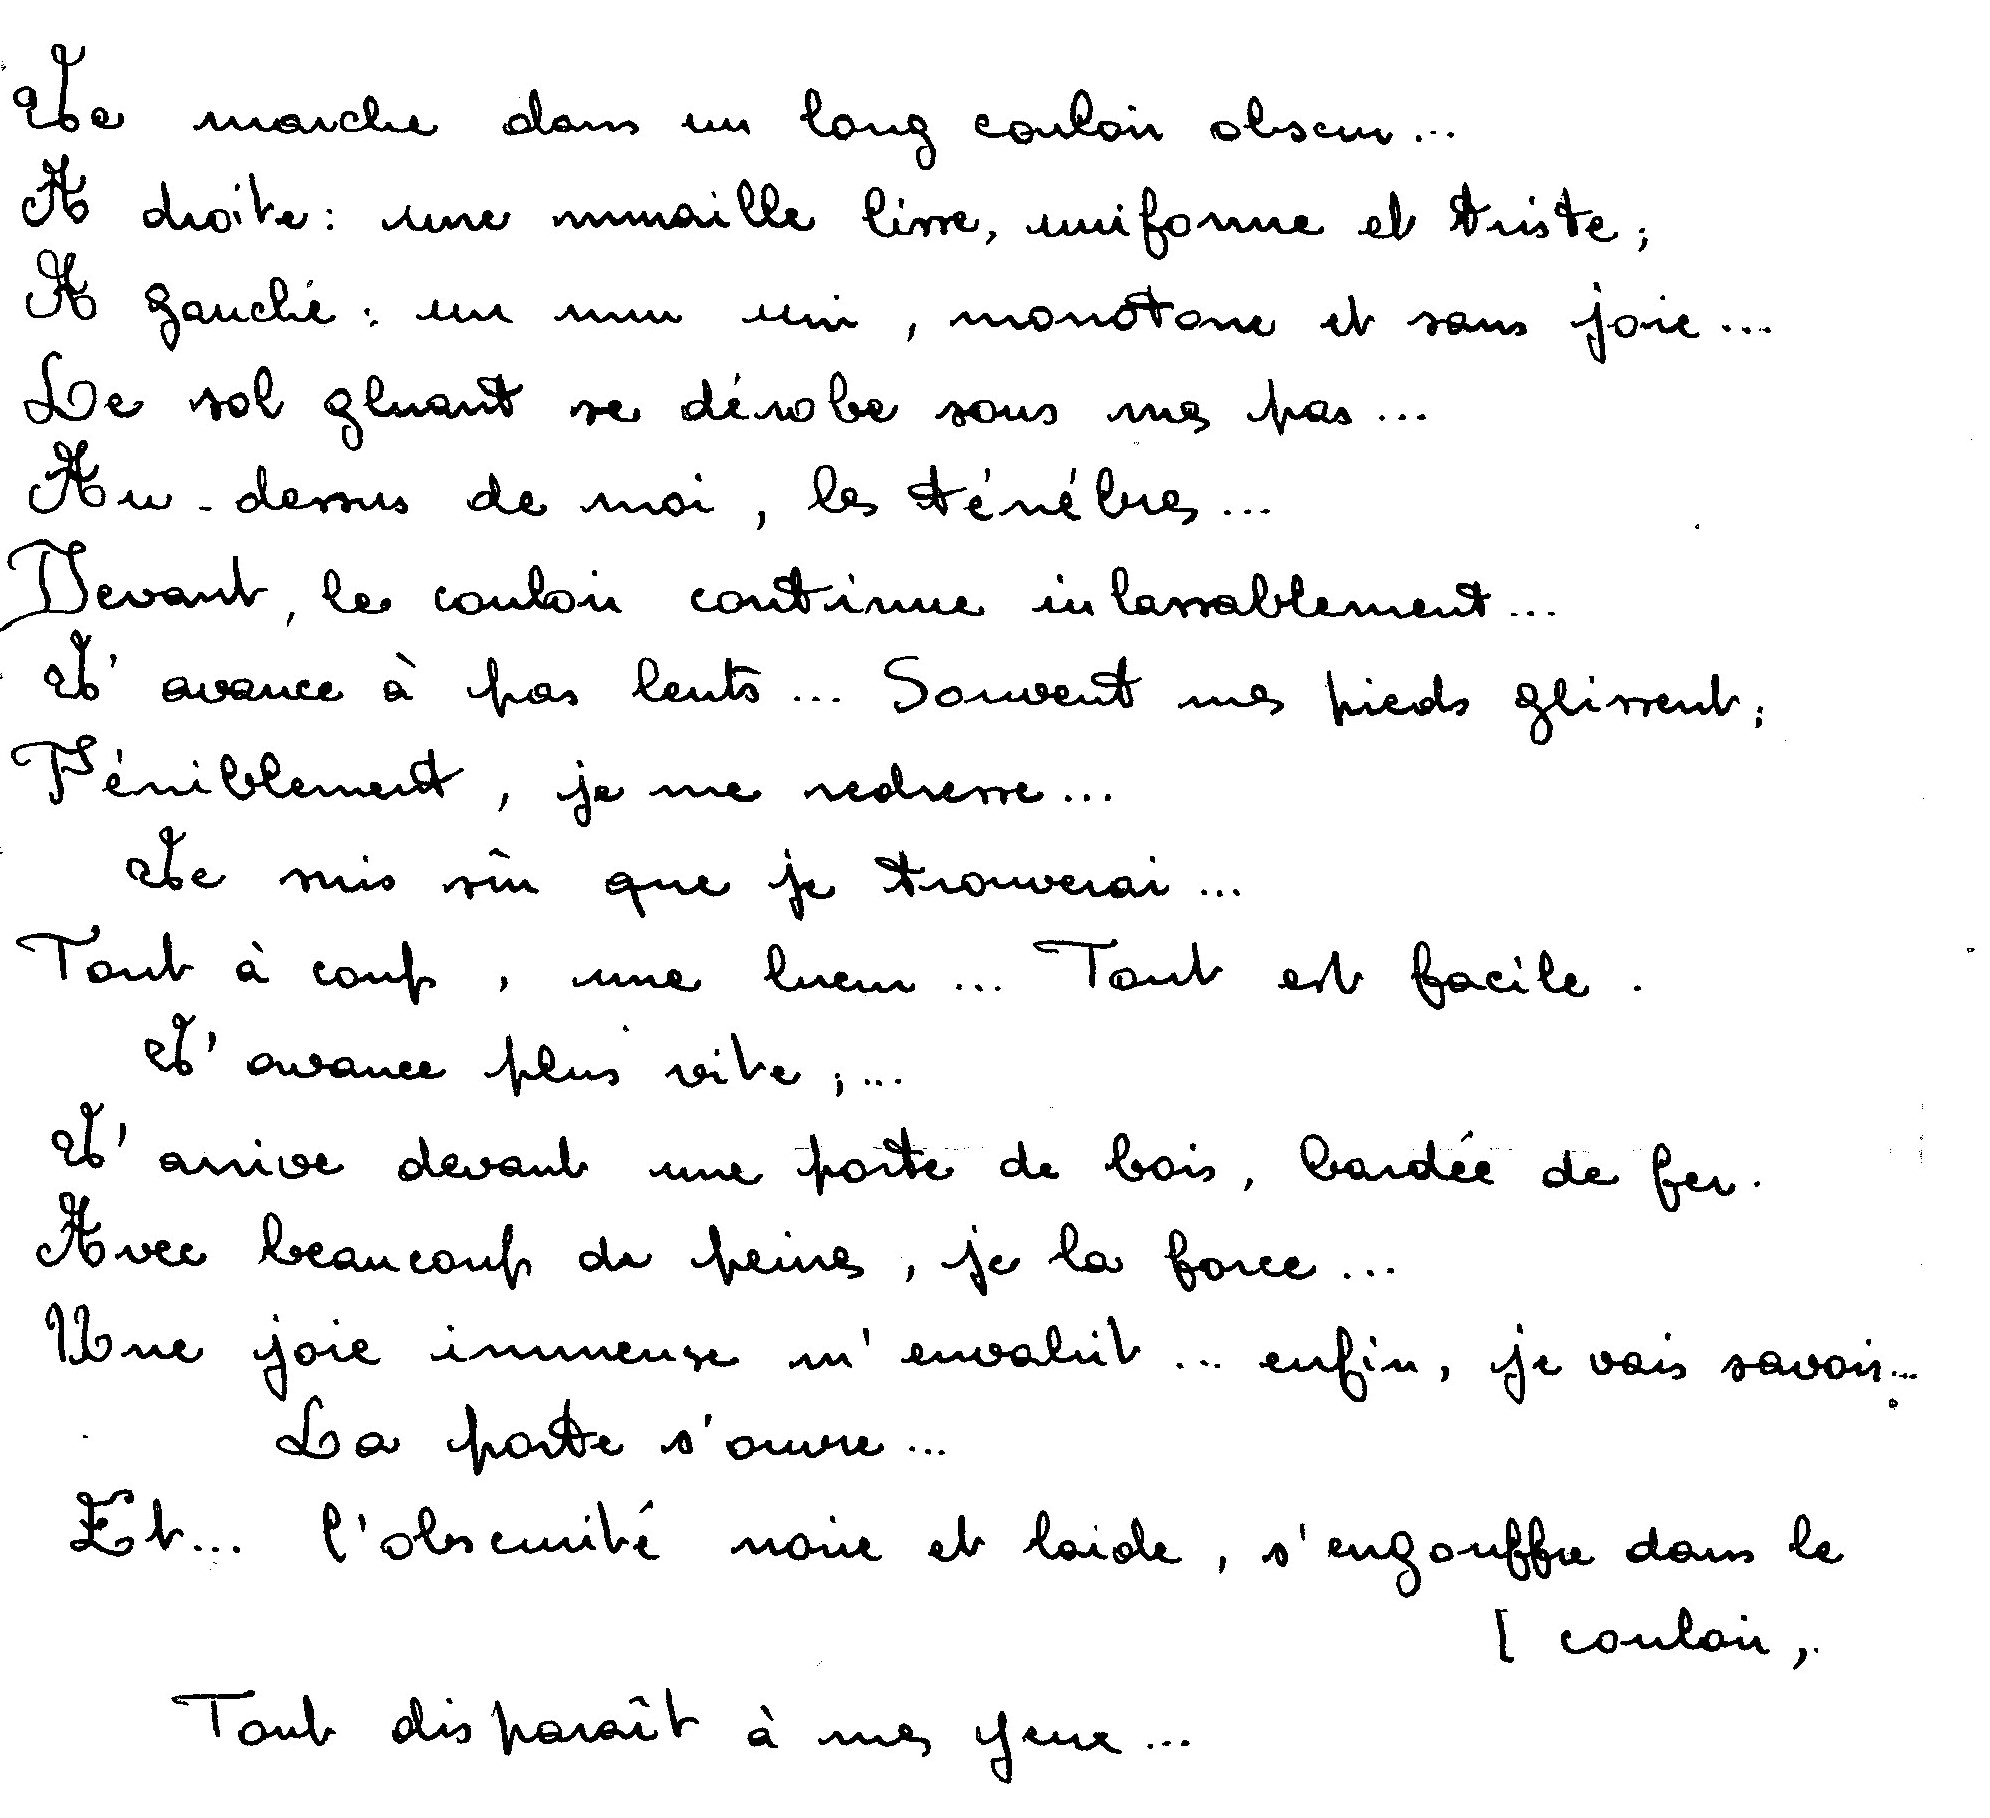 Je marche dans un long couloir obscur...
A droite : une muraille lisse, uniforme et triste ;
A gauche : un mur uni, monotone et sans joie...
Le sol gluant se dérobe sous mes pas...
Au-dessus de moi, les ténébres...
Devant, le couloir continue inlassablement...
J'avance à pas lents... Souvent mes pieds glissent ;
Péniblement, je me redresse...
Je suis sûr que je trouverai...
Tout à coup, une lueur... Tout est facile.
J'avance plus vite ;...
J'arrive devant une porte de bois, bardée de fer.
Avec beaucoup de peines, je la force...
Une joie immense m'envahit... enfin, je vais savoir...
La porte s'ouvre...
Et... l'obscurité noire et laide, s'engouffre dans le
[ couloir,
Tout disparaît à mes yeux...